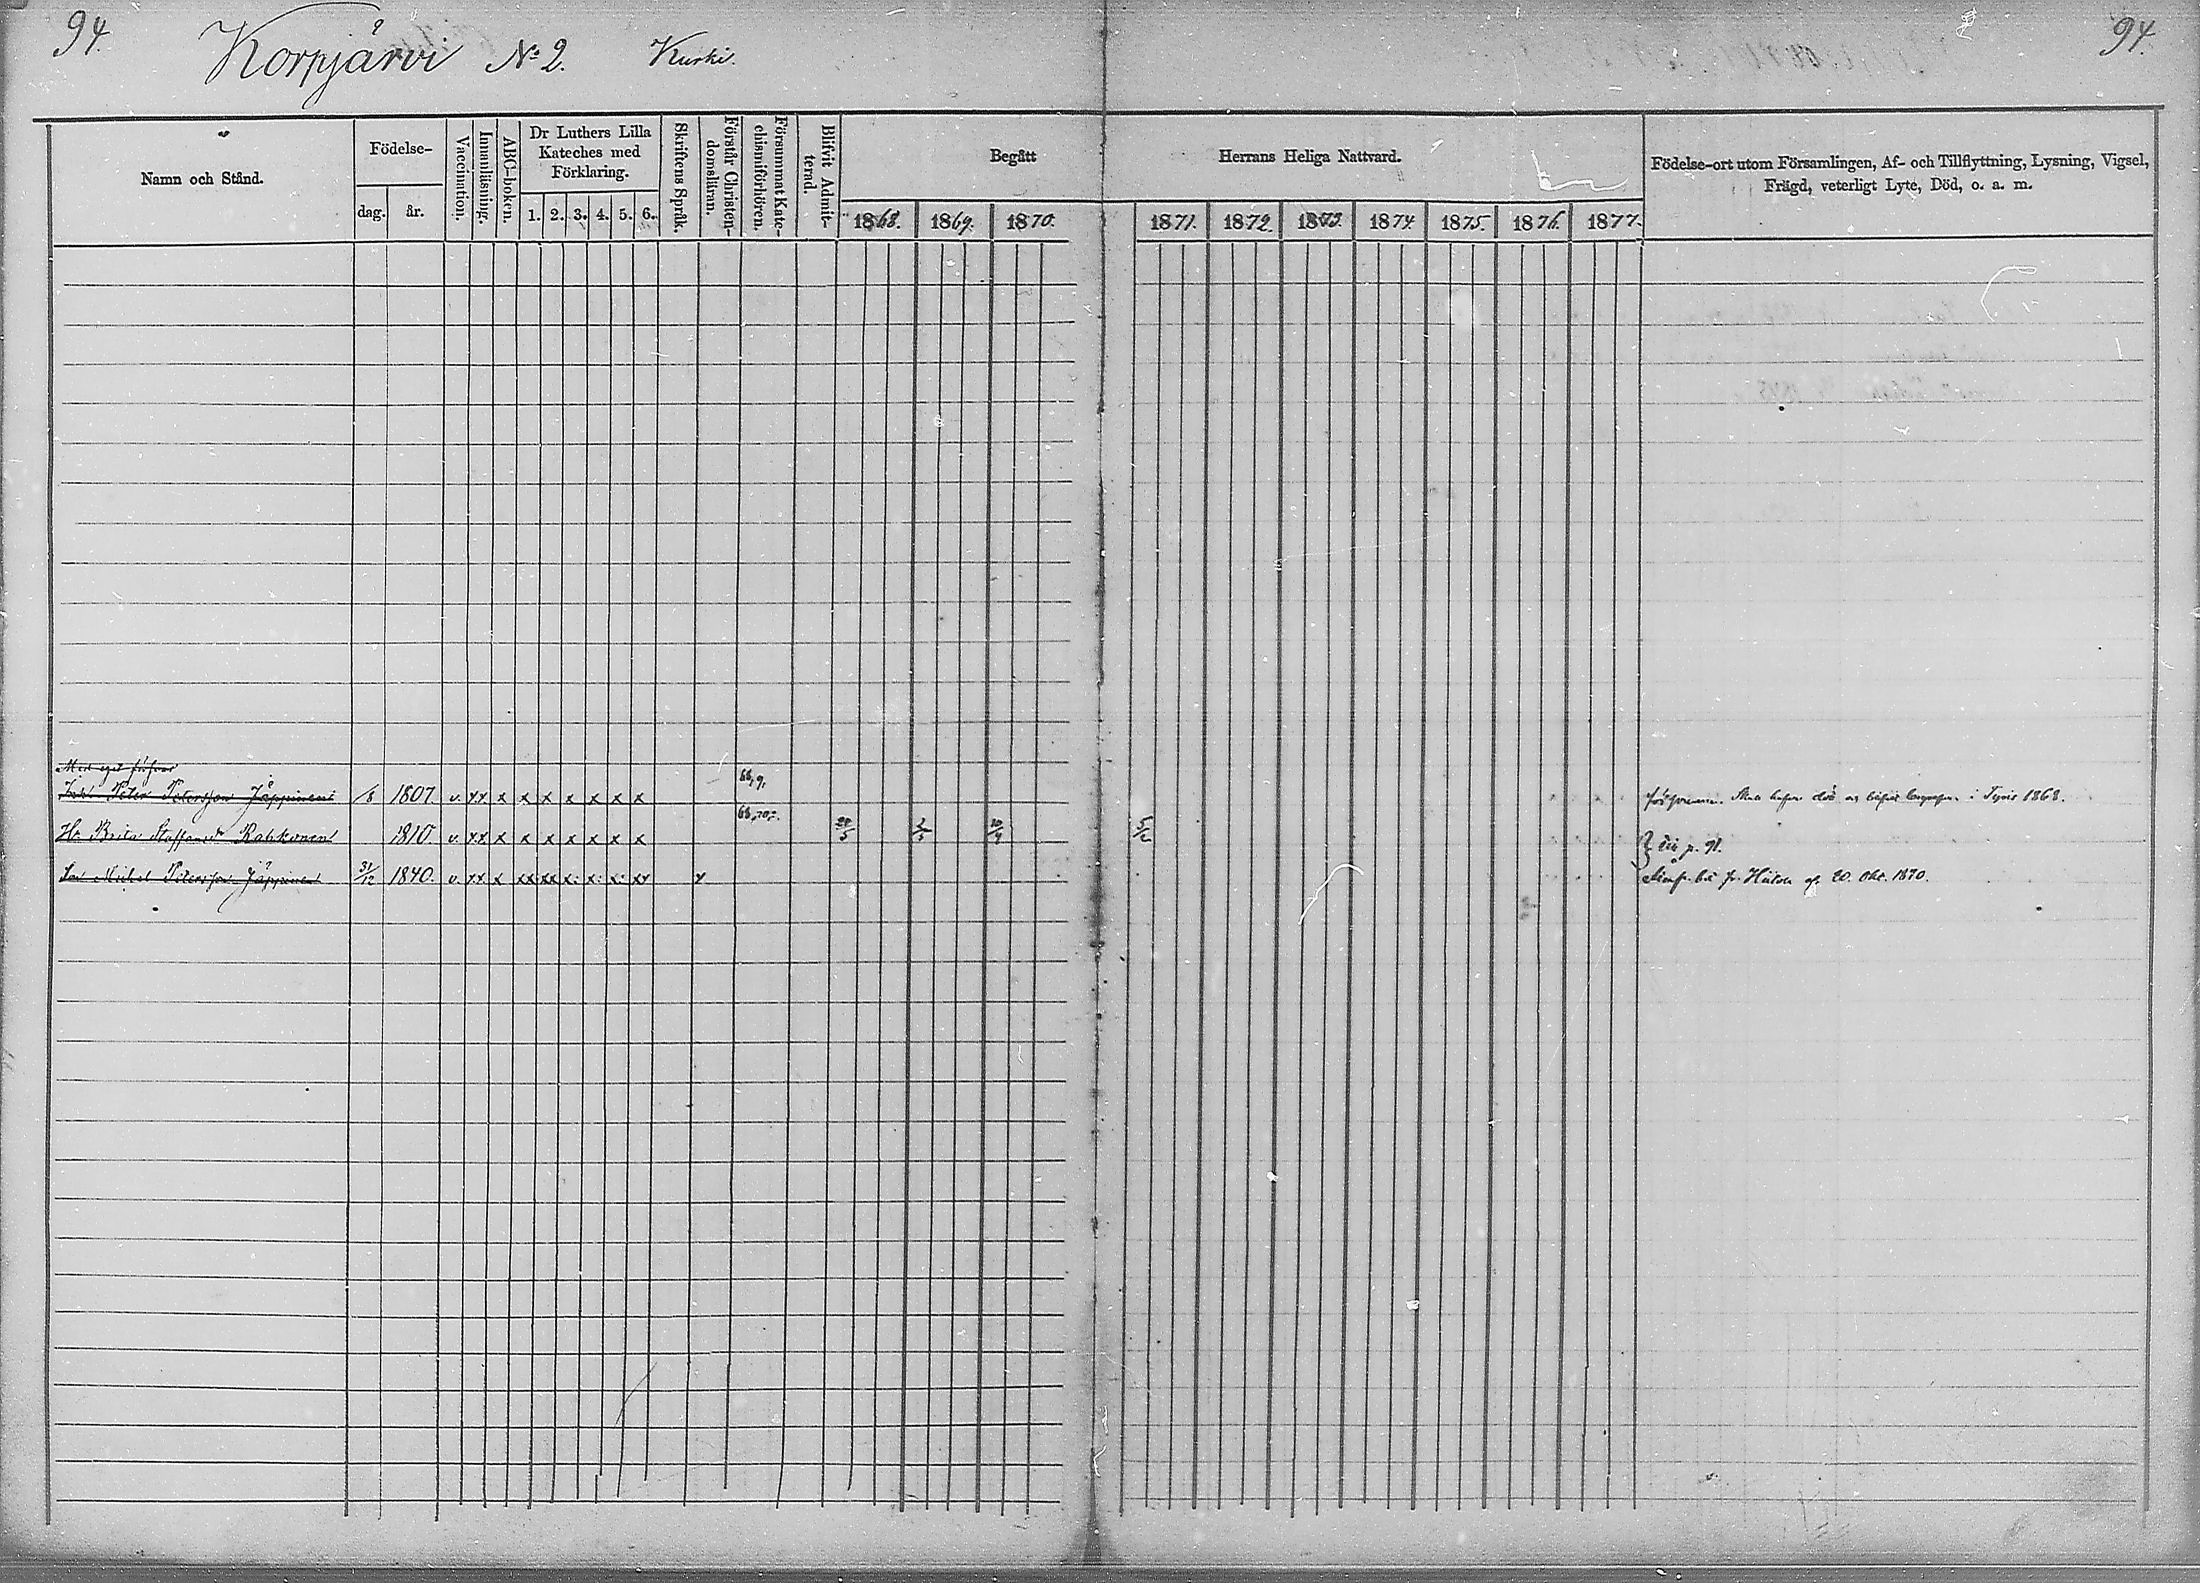 94.
Korpjärvi № 2. Kurki.
94.
Namn och Stånd.
Födelse-
dag.
år.
Vaccination.
Innanläsning.
ABC-boken.
Dr Luthers Lilla
Kateches med
Förklaring.
1. 2. 3. 4. 5. 6.
Skriftens Språk.
Förstår Christen-
domslåran.
Försummat Kate-
chismiförhören.
Blifvit Admit-
terad.
Begått Herrans Heliga Nattvard.
1868. 1869. 1870. 1871. 1872. 1873. 1874. 1875. 1876. 1877.
Födelse-ort utom Församlingen, Af- och Tillflyttning, Lysning, Vigsel,
Frägd, veterligt Lyte, Död, o. a. m.
Med eget
Peter Petersson Jäppinen 1807. v. xx x x x x x x x 68,9. 1868.
Hu Brita Staffansdr Rahkonen 1810. v. xx x x x x x x x 68,70,-. 5/2 p. 91.
Son Michel Petersson Jäppinen 31/12 1840. v. xx x xx xx x: x: x: xx x 20. Okt. 1870.